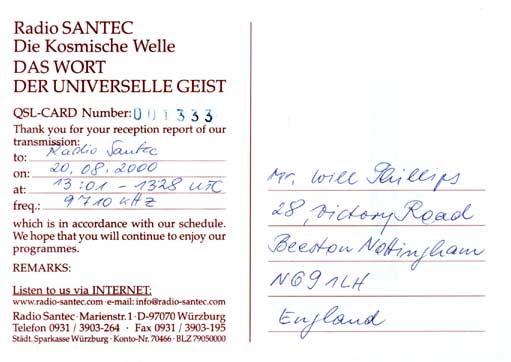 Radio SANTEC
Die Kosmische Welle
DAS WORT
DER UNIVERSELLE GEIST
QSL-CARD Number: 001333
Thank you for your reception report of our
transmission:
to: Radio Santec
on: 20.08.2000
at: 13:01 - 1328 UTC
freq.: 9710 kHz
which is in accordance with our schedule.
We hope that you will continue to enjoy our
programmes.
REMARKS:
Listen to us via INTERNET:
www.radio-santec.com · e-mail: info@radio-santec.com
Radio Santec · Marienstr. 1 · D-97070 Würzburg
Telefon 0931 / 3903-264 · Fax 0931 / 3903-195
Städt. Sparkasse Würzburg · Konto-Nr. 70466 · BLZ 79050000
Mr. Will Phillips
28, Victory Road
Beeston Nottingham
NG9 1LH
England